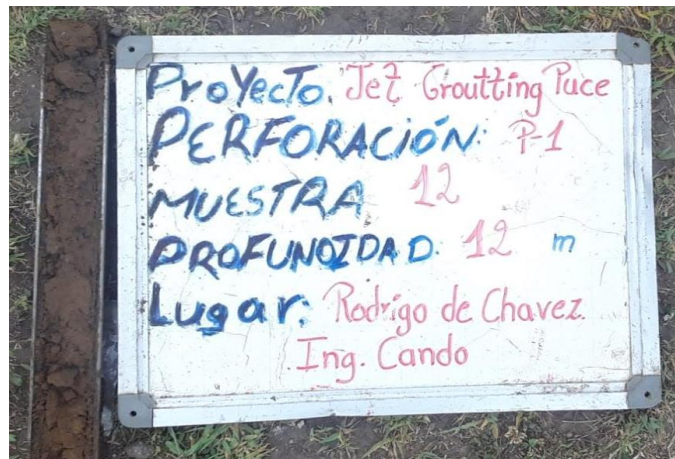 Proyecto: Jet Groutting Puce
PERFORACIÓN: P-1
MUESTRA 12
PROFUNDIDAD: 12 m
Lugar: Rodrigo de Chavez.
Ing. Cando